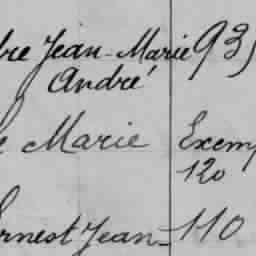 bre Jean-Marie 935
André
e Marie Exemp
120
Ernest Jean- 110